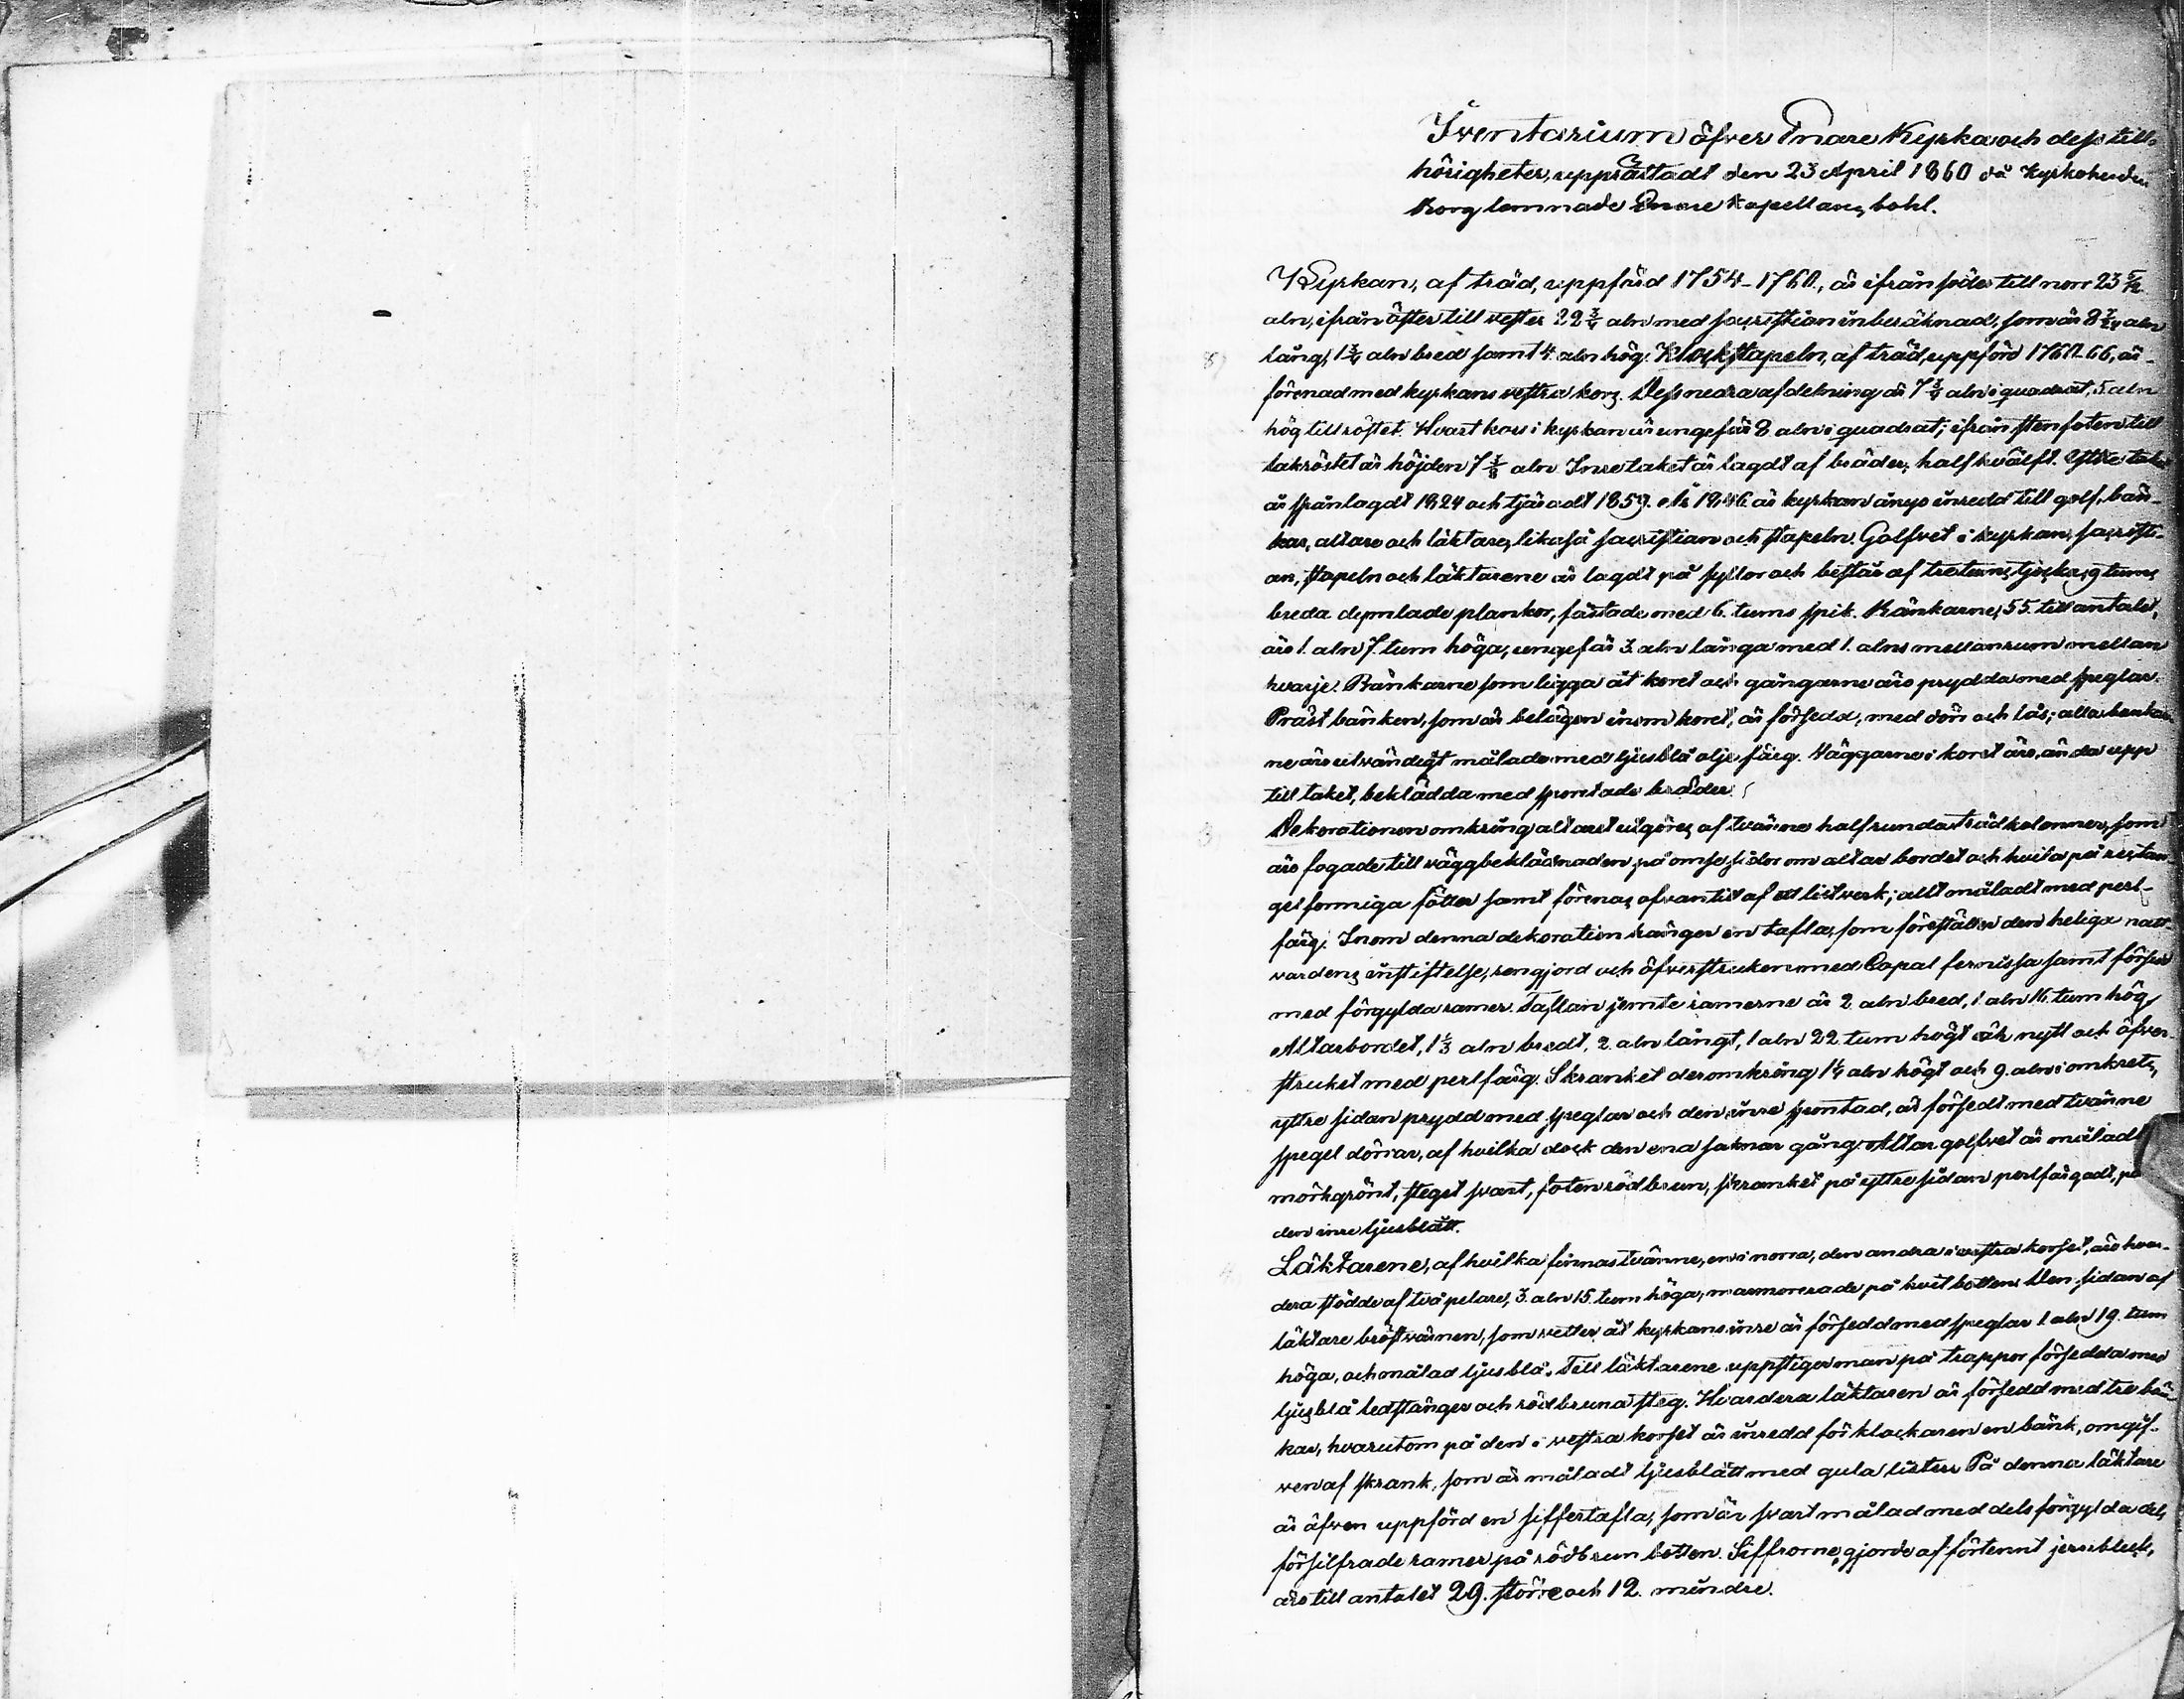 Inventarium öfver Enare Kyrka och dess till-
hörigheter, upprättadt den 23 April 1860 då Kyrkoherden
Borg lemnade Enare Kapellans bohl.
Kyrkan, af träd, uppförd 1754-1760, är ifrån söder till norr 23 5/12
aln, ifrån öster till vester 22 3/4 aln med sacristian inberäknad, som är 8 7/24 aln
lång, 1 3/4 aln bred samt 4. aln hög. Klockstapeln, af träd, uppförd 1760-66, är
förenad med kyrkans vestra kors. Dess nedra afdelning är 7 3/4 aln i quadrat, 5 aln
hög till röstet. Hvart kors i kyrkan är ungefär 8 aln i quadrat; ifrån stenfoten till
takröstet är höjden 7 3/8 aln. Inre taket är lagdt af bräder, half hvälft. Yttre taket
är spånlagdt 1824 och tjäradt 1859. År 1846 är kyrkan ånyo inredd till golf, bän-
kar, altare och läktare, likaså sacristian och stapeln. Golfvet i kyrkan, sacristi-
an, stapeln och läktarene är lagdt på syllor och består af tretums tjocka, 9 tums
breda dymlade plankor, fästade med 6. tums spik. Bänkarne, 55. till antalet,
äro 1. aln 7. tum höga, ungefär 3. aln långa med 1. alns mellanrum mellan
hvarje. Bänkarne som ligga åt koret och gångarne äro prydda med speglar.
Präst bänken, som är belägen inom koret, är försedd, med dörr och lås; alla bänkar-
ne äro utvändigt målade med ljusblå olje färg. Väggarne i koret äro, ända upp
till taket, beklädda med spontade bräder.
Dekorationen omkring altaret utgöres af tvänne halfrunda träd kolonner, som
äro fogade till väggbeklädnaden på ömse sidor om altar bordet och hvila på rectan-
gel formiga fötter samt förenas ofvantill af ett listverk; allt måladt med perl-
färg. Inom denna dekoration hänger en tafla, som föreställer den heliga natt-
vardens instiftelse, rengjord och öfverstruken med Copal fernissa samt försedd
med förgylda ramer. Taflan jemte ramerne är 2 aln bred, 1 aln 16. tum hög.
Altarbordet, 1 1/3 aln bredt, 2. aln långt, 1 aln 22 tum högt är nytt och öfver-
struket med perlfärg. Skranket deromkring 1 1/4 aln högt och 9. aln i omkrets,
yttre sidan prydd med speglar och den inre spontad, är försedt med tvänne
spegel dörrar, af hvilka dock den ena saknar gång. Altar golfvet är måladt
mörkgrönt, steget svart, foten rödbrun, skranket på yttre sidan perlfärgadt, på
den inre ljusblått.
Läktarene, af hvilka finnas tvänne, en i norra, den andra i vestra korset, äro hvar-
dera stödde af två pelare, 3. aln 15. tum höga, marmorerade på hvit botten. Den sidan af
läktare bröstvärnen, som vetter åt kyrkans inre är försedd med speglar 1 aln 19. tum
höga, och målad ljusblå. Till läktarene uppstiger man på trappor försedda med
ljusblå ledstänger och rödbruna steg. Hvardera läktaren är försedd med tre bän-
kar, hvarutom på den i vestra korset är inredd för klockaren en bänk, omgif-
ven af skrank, som är måladt ljusblått med gula lister. På denna läktare
är äfven uppförd en siffertafla, som är svart målad med dels förgylda dels
försilfrade ramer på rödbrun botten. Siffrorne, gjorde af förtennt jernbleck,
äro till antalet 29. större och 12. mindre.